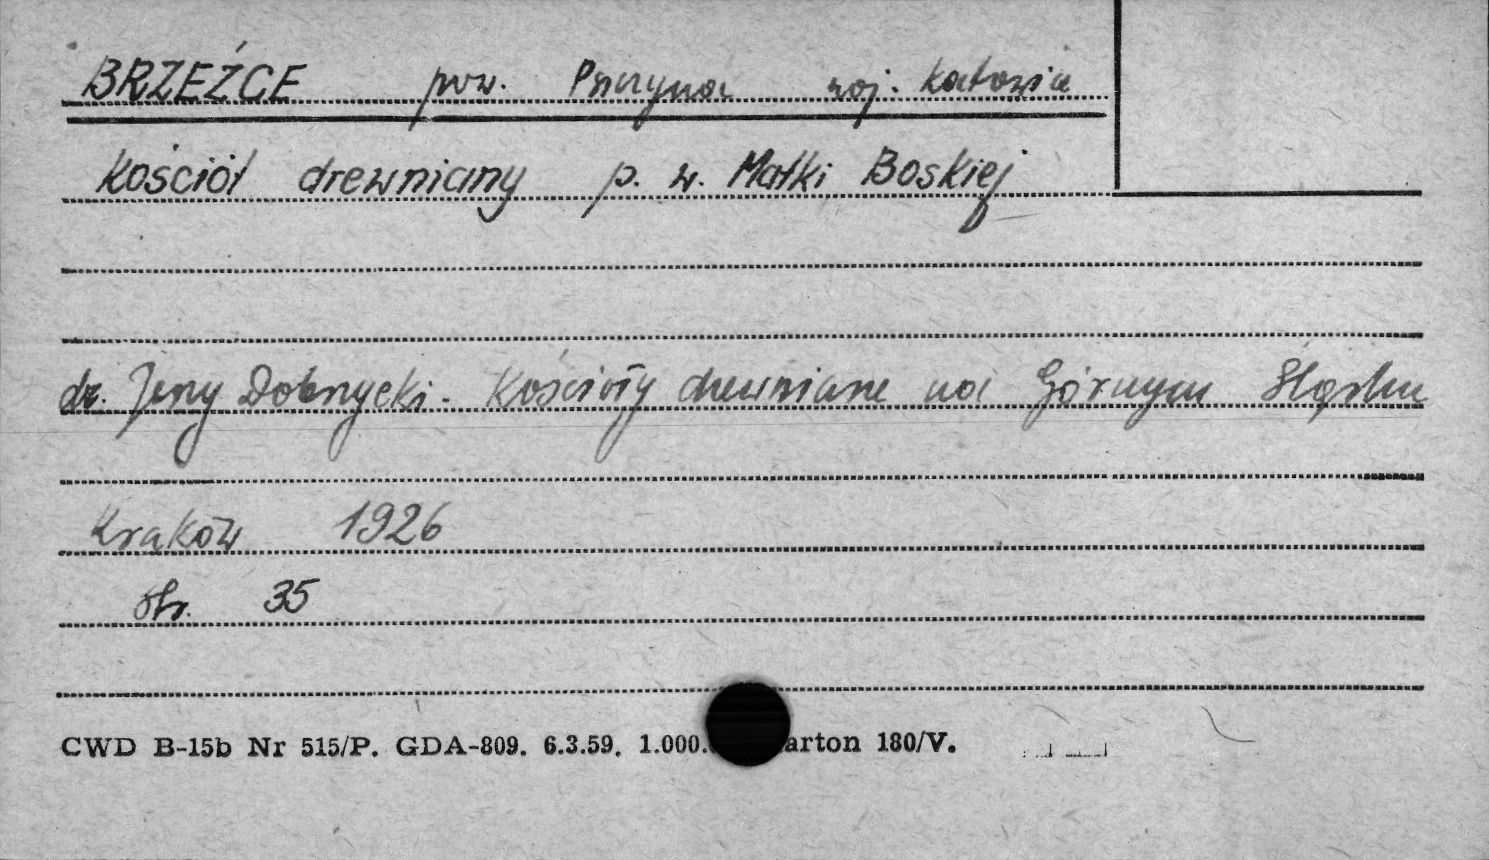 BRZEŹCE pow. Pszczyna woj. Katowice
Kościół drewniany p.w. Matki Boskiej
dr. Jerzy Dobrzycki. Kościoły drewniane na Górnym Śląsku
Kraków 1926
str. 35
CWD B-15b Nr 515/P. GDA-809. 6.3.59. 1.000. arton 180/V.